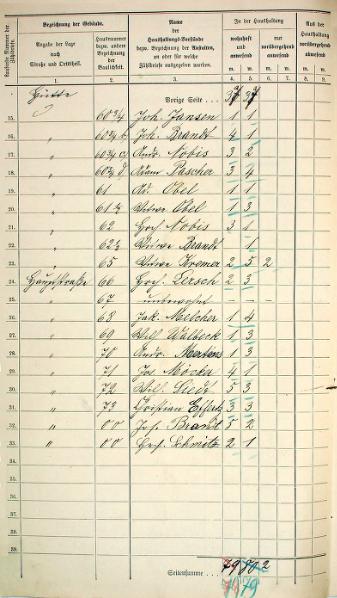 Laufende Nummer der Zähllisten.
Bezeichnung der Gebäude.
Angabe der Lage
nach
Straße und Ortstheil.
Hausnummer
bezw. andere
Bezeichnung
der
Baulichkeit.
Name
der
Haushaltungs-Vorstände
bezw. Bezeichnung der Anstalten,
an oder für welche
Zähllisten ausgegeben wurden.
In der Haushaltung
wohnhaft und anwesend
nur vorübergehend anwesend
Aus der Haushaltung vorübergehend abwesend
m. w. m. w. m. w.
1. 2. 3. 4. 5. 6. 7. 8. 9.
Hütte Vorige Seite 37 37
15. " 60 3/4 Joh. Jansen 1 1
16. " 60 3/4 b Joh. Brandt 4 1
17. " 60 3/4 c Andr. Nobis 3 2
18. " 60 3/4 d Adam Pascher 3 4
19. " 61 Ad. Obel 1 1
20. " 61 1/2 Witwe Obel 1 3
21. " 62 Hrch Nobis 3 1
22. " 62 1/2 Witwe Brandt 1
23. " 65 Witwe Kremer 2 5 2
24. Hauptstraße 66 Hrch. Lersch 2 3
" 67 unbewohnt - - -
26. " 68 Jak. Melcher 1 4
27. " 69 Wilh. Walbeck 1 3
28. " 70 Andr. Mertens 1 3
29. " 71 Jos. Möcker 4 1
30. " 72 Wilh. 5 3
31. " 73 Christian Effertz 3 3
32. " 00 Joh. Brandt 5 2
33. " 00 Hrch. Schmitz 2 1
34.
35.
36.
37.
38.
39.
Seitensumme 79 80 2
79 79